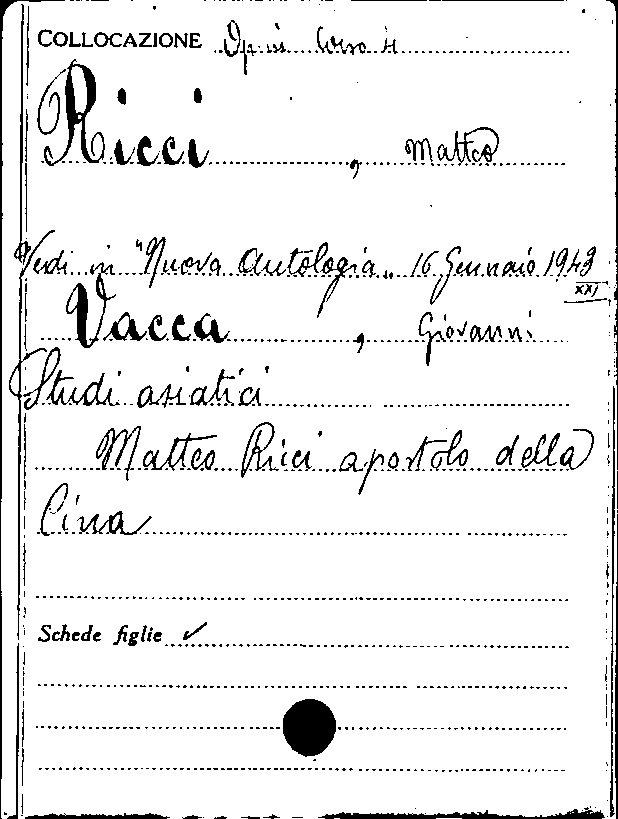 COLLOCAZIONE Op in Corso 4
Ricci, Matteo
Vedi in "Nuova Antologia„ 16 Gennaio 1943
XXI
Vacca, Giovanni
Studi asiatici
Matteo Ricci apostolo della
Cina
Schede figlie ✓